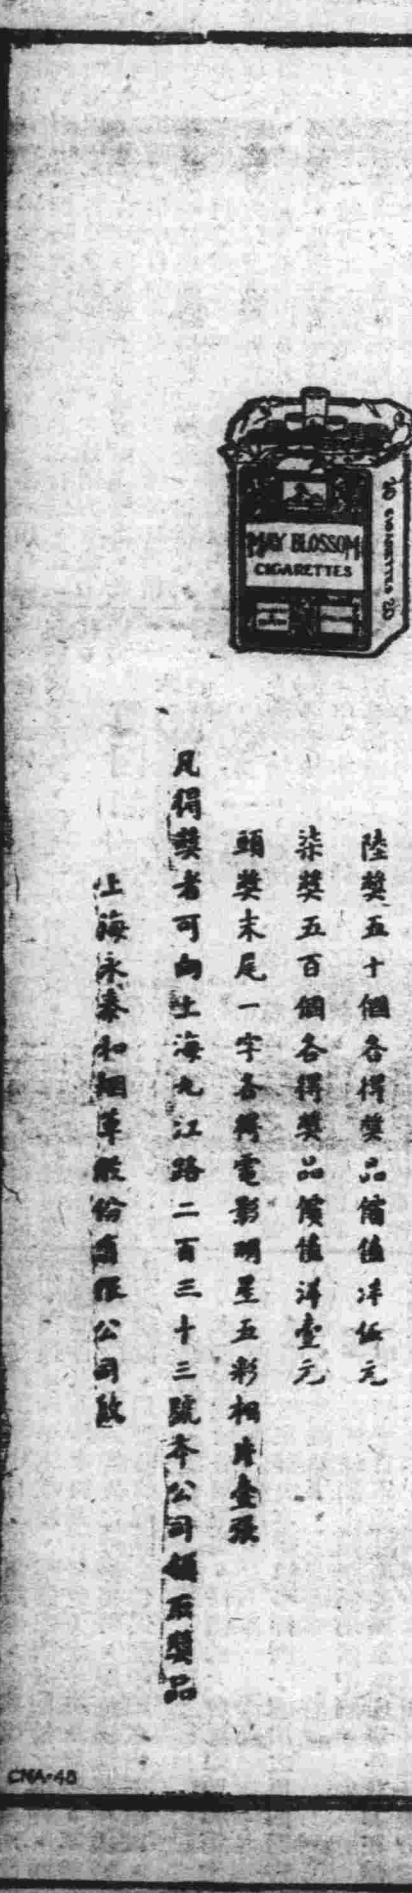 MAY BLOSSOM
CIGARETTES
20 CIGARETTES 20
陸獎五十個各得獎品價值洋伍元
柒獎五百個各得獎品價值洋壹元
頭獎末尾一字各得電影明星五彩相片壹張
凡得獎者可向上海九江路二百三十三號本公司領取獎品
上海永泰和烟草股份有限公司啟
CMA-48